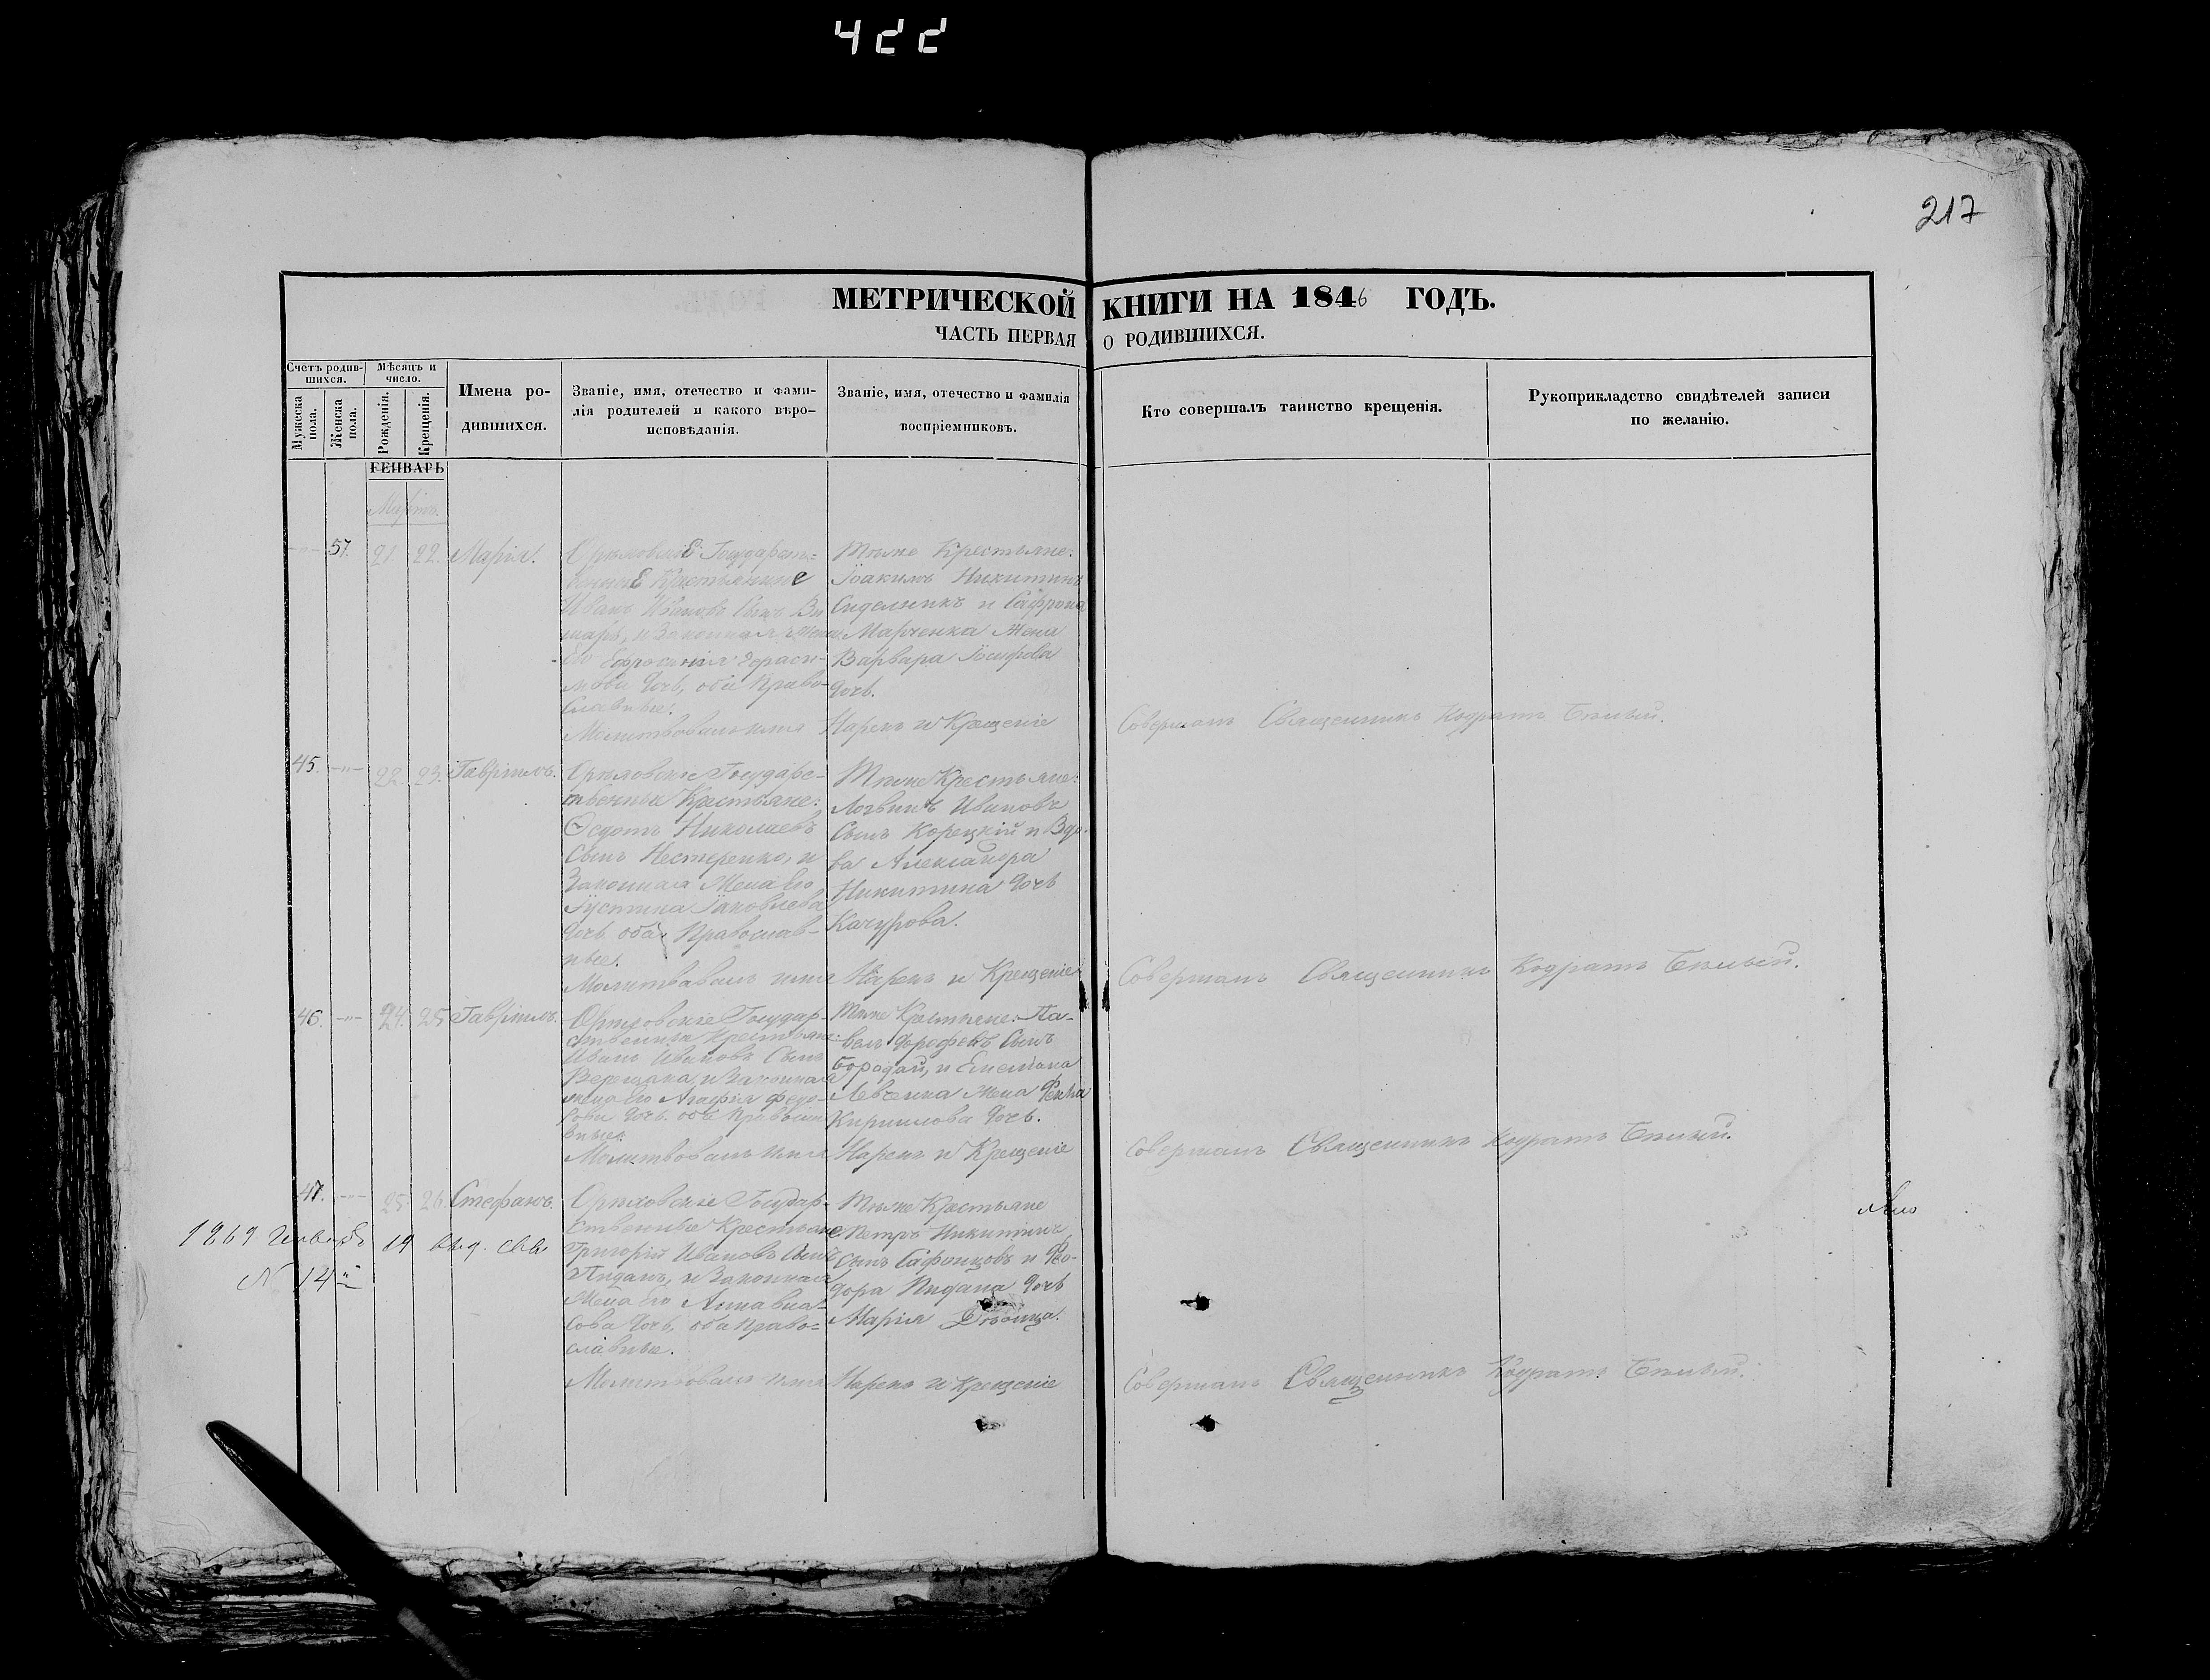 422
217
МЕТРИЧЕСКОЙ КНИГИ НА 1846 ГОДЪ.
ЧАСТЬ ПЕРВАЯ О РОДИВШИХСЯ.
Счетъ родив-
шихся.
Мужеска
пола.
Женска
пола.
Мѣсяцъ и
число.
Рожденія.
Крещенія.
Имена ро-
дившихся.
Званіе, имя, отечество и фами-
лія родителей и какого вѣро-
исповѣданія.
Званіе, имя, отечество и фамилія
воспріемниковъ.
Кто совершалъ таинство крещенія.
Рукоприкладство свидѣтелей записи
по желанію.
ГЕНВАРЬ
Мартъ.
57. 21. 22. Марія.
Орѣховскіе Государст=
венные Крестьяне
Иванъ Ивановъ Сынъ
и Законная Жена
его Ефросинія Гераси-
мова дочь, оба Право-
славные.
Молитвовалъ имя Нарекъ и Крещеніе
Тѣже Крестьяне:
Іоакимъ Никитинъ
Сидельникъ и Сафрона
Марченка Жена
Варвара Іосифова
дочь.
Совершалъ Священникъ Кодратъ Бѣлый.
45. 22. 23. Гавріилъ.
Орѣховскіе Государс-
твенные Крестьяне:
Ѳедотъ Николаевъ
Сынъ Нестеренко, и
Законная Жена его
Іустина Іаковлева
дочь оба Православ-
ные.
Молитвовалъ имя Нарекъ и Крещеніе
Тѣже Крестьяне:
Логвинъ Ивановъ
Сынъ Корецкій и Вдо-
ва Александра
Никитина дочь
Качурова.
Совершалъ Священникъ Кодратъ Бѣлый.
46. 24. 25 Гавріилъ.
Орѣховскіе Государ-
ственные Крестьяне:
Иванъ Ивановъ Сынъ
Верещака, и Законная
жена его Агафія Федо-
рова дочь. оба Правосла
вные.
Молитвовалъ имя Нарекъ и Крещеніе
Тѣже Крестьяне: Па-
велъ Дорофеевъ Сынъ
Бородай, и Емеліана
Левченка Жена Фекла
Кирилова дочь.
Совершалъ Священникъ Кодратъ Бѣлый.
47. 25 26 Стефанъ.
Орѣховскіе Государ-
ственные Крестьяне
Григорій Ивановъ Сынъ
Пиданъ, и Законная
Жена его Анна Вла-
сова дочь, оба Право=
славные.
Молитвовалъ имя Нарекъ и Крещеніе
Тѣже Крестьяне
Петръ Никитинъ
сынъ Сафонцовъ и Фео-
дора Пидана дочь
Марія Дѣвица.
Совершалъ Священникъ Кодратъ Бѣлый.
1869 Генваря 14 выд. свид.
N 14